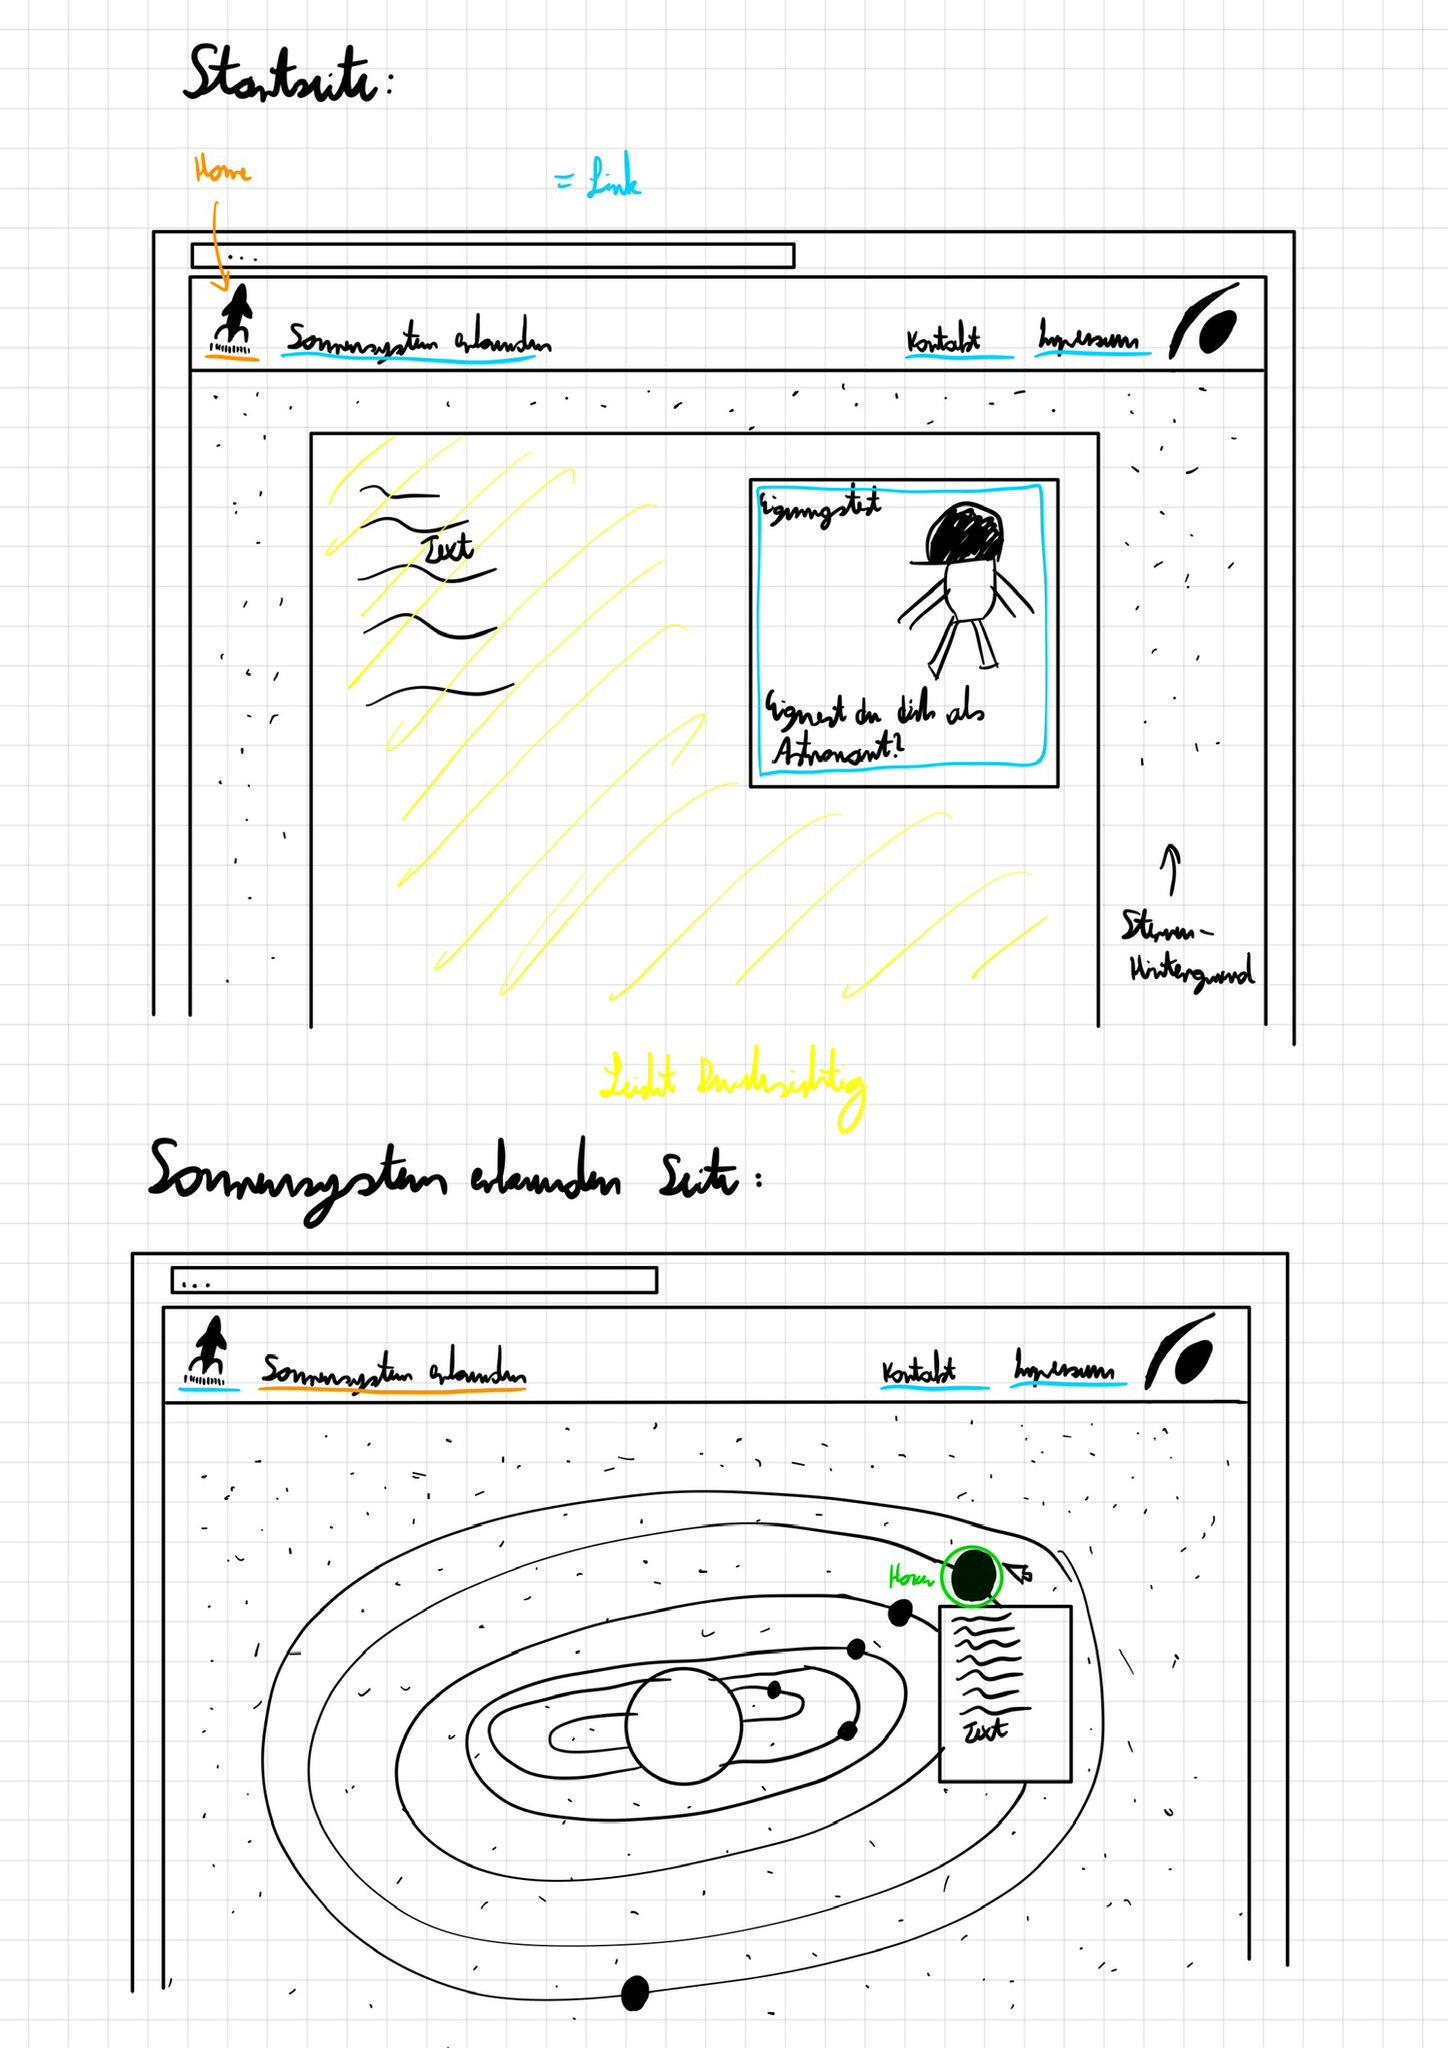 Startseite:
Home
= Link
...
Sonnensystem erkunden
Kontakt
Impressum
Eignungstest
Text
Eignest du dich als
Astronaut?
Sternen-
Hintergrund
Leicht Durchsichtig
Sonnensystem erkunden Seite:
...
Sonnensystem erkunden
Kontakt
Impressum
Hover
Text